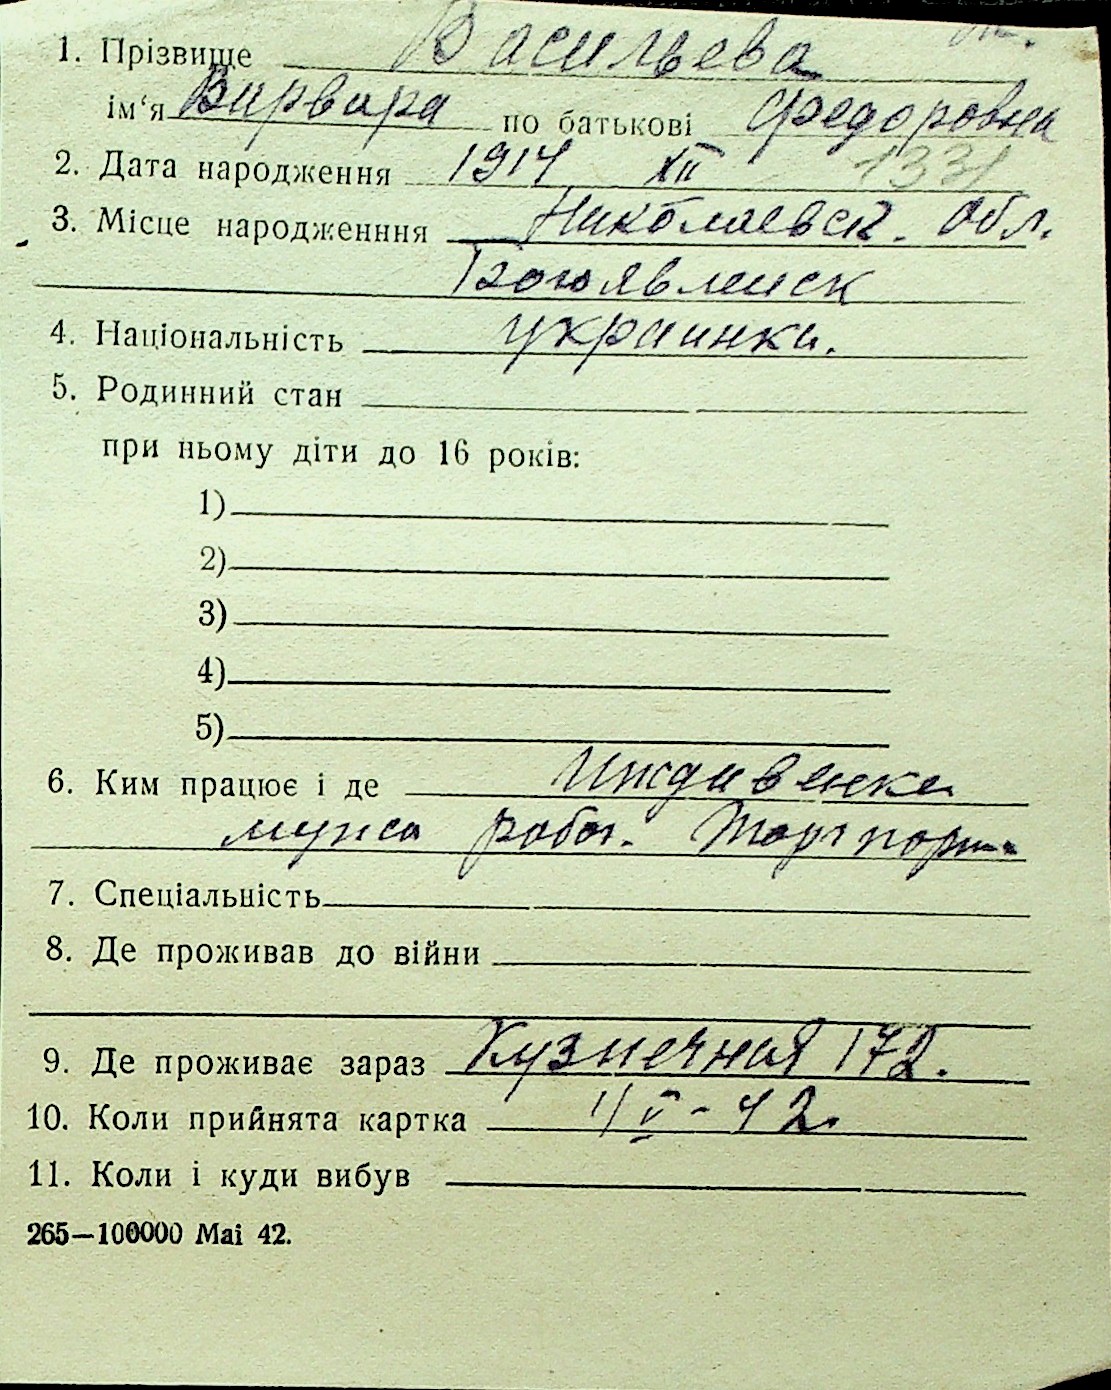 1. Прізвище Васильева
ім‘я Варвара по батькові Федоровна
2. Дата народження 1914 XII 1331
3. Місце народженння Николаевск. обл.
Богоявленск
4. Національність украинка.
5. Родинний стан
при ньому діти до 16 років:
1)
2)
3)
4)
5)
6. Ким працює і де Иждивенка
мужа рабоч. Торгпорт
7. Спеціальність
8. Де проживав до війни
9. Де проживає зараз Кузнечная 172.
10. Коли прийнята картка V-42.
11. Коли і куди вибув
265—100000 Mai 42.